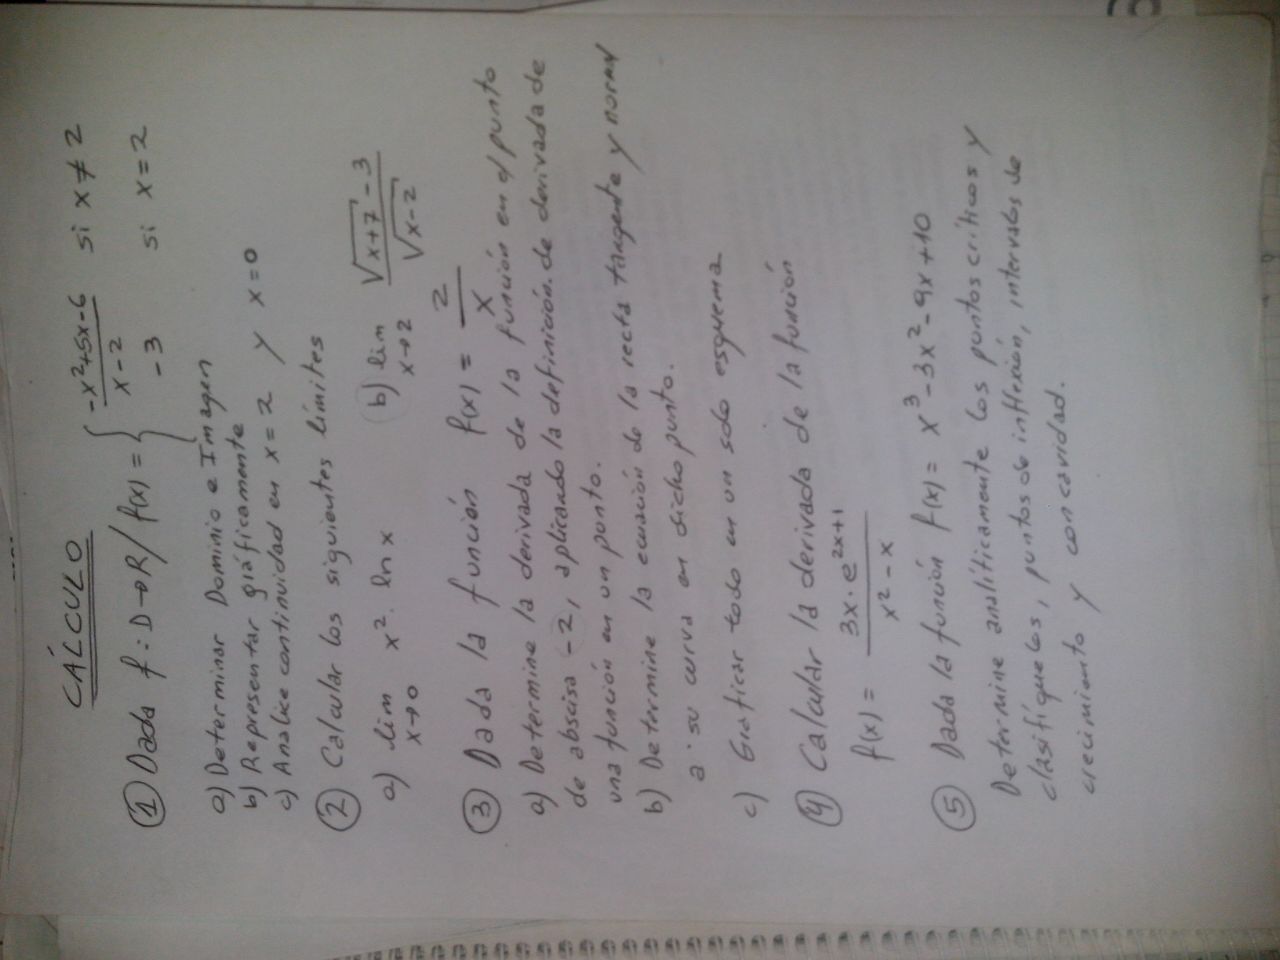 CÁLCULO
① Dada f : D → R / f(x) = { (-x²+5x-6)/(x-2) si x ≠ 2
-3 si x = 2
a) Determinar Dominio e Imagen
b) Representar gráficamente
c) Analice continuidad en x = 2 y x = 0
② Calcular los siguientes límites
a) lim x→0 x². ln x b) lim x→2 (√(x+7) - 3)/√(x-2)
③ Dada la función f(x) = 2/x
a) Determine la derivada de la función en el punto
de abscisa -2, aplicando la definición. de derivada de
una función en un punto.
b) Determine la ecuación de la recta tangente y normal
a su curva en dicho punto.
c) Graficar todo en un solo esquema
④ Calcular la derivada de la función
f(x) = (3x · e^(2x+1))/(x² - x)
⑤ Dada la función f(x) = x³-3x²-9x+10
Determine analíticamente los puntos críticos y
clasifíquelos, puntos de inflexión, intervalos de
crecimiento y concavidad.